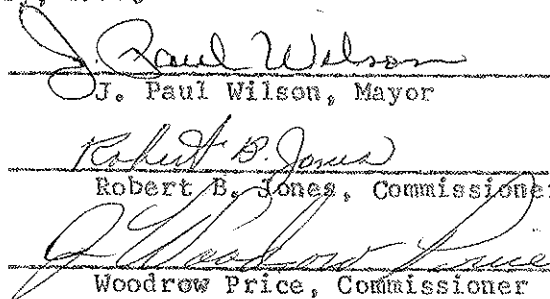 J. Paul Wilson
J. Paul Wilson, Mayor
Robert B. Jones
Robert B. Jones, Commissioner
J Woodrow Price
Woodrow Price, Commissioner